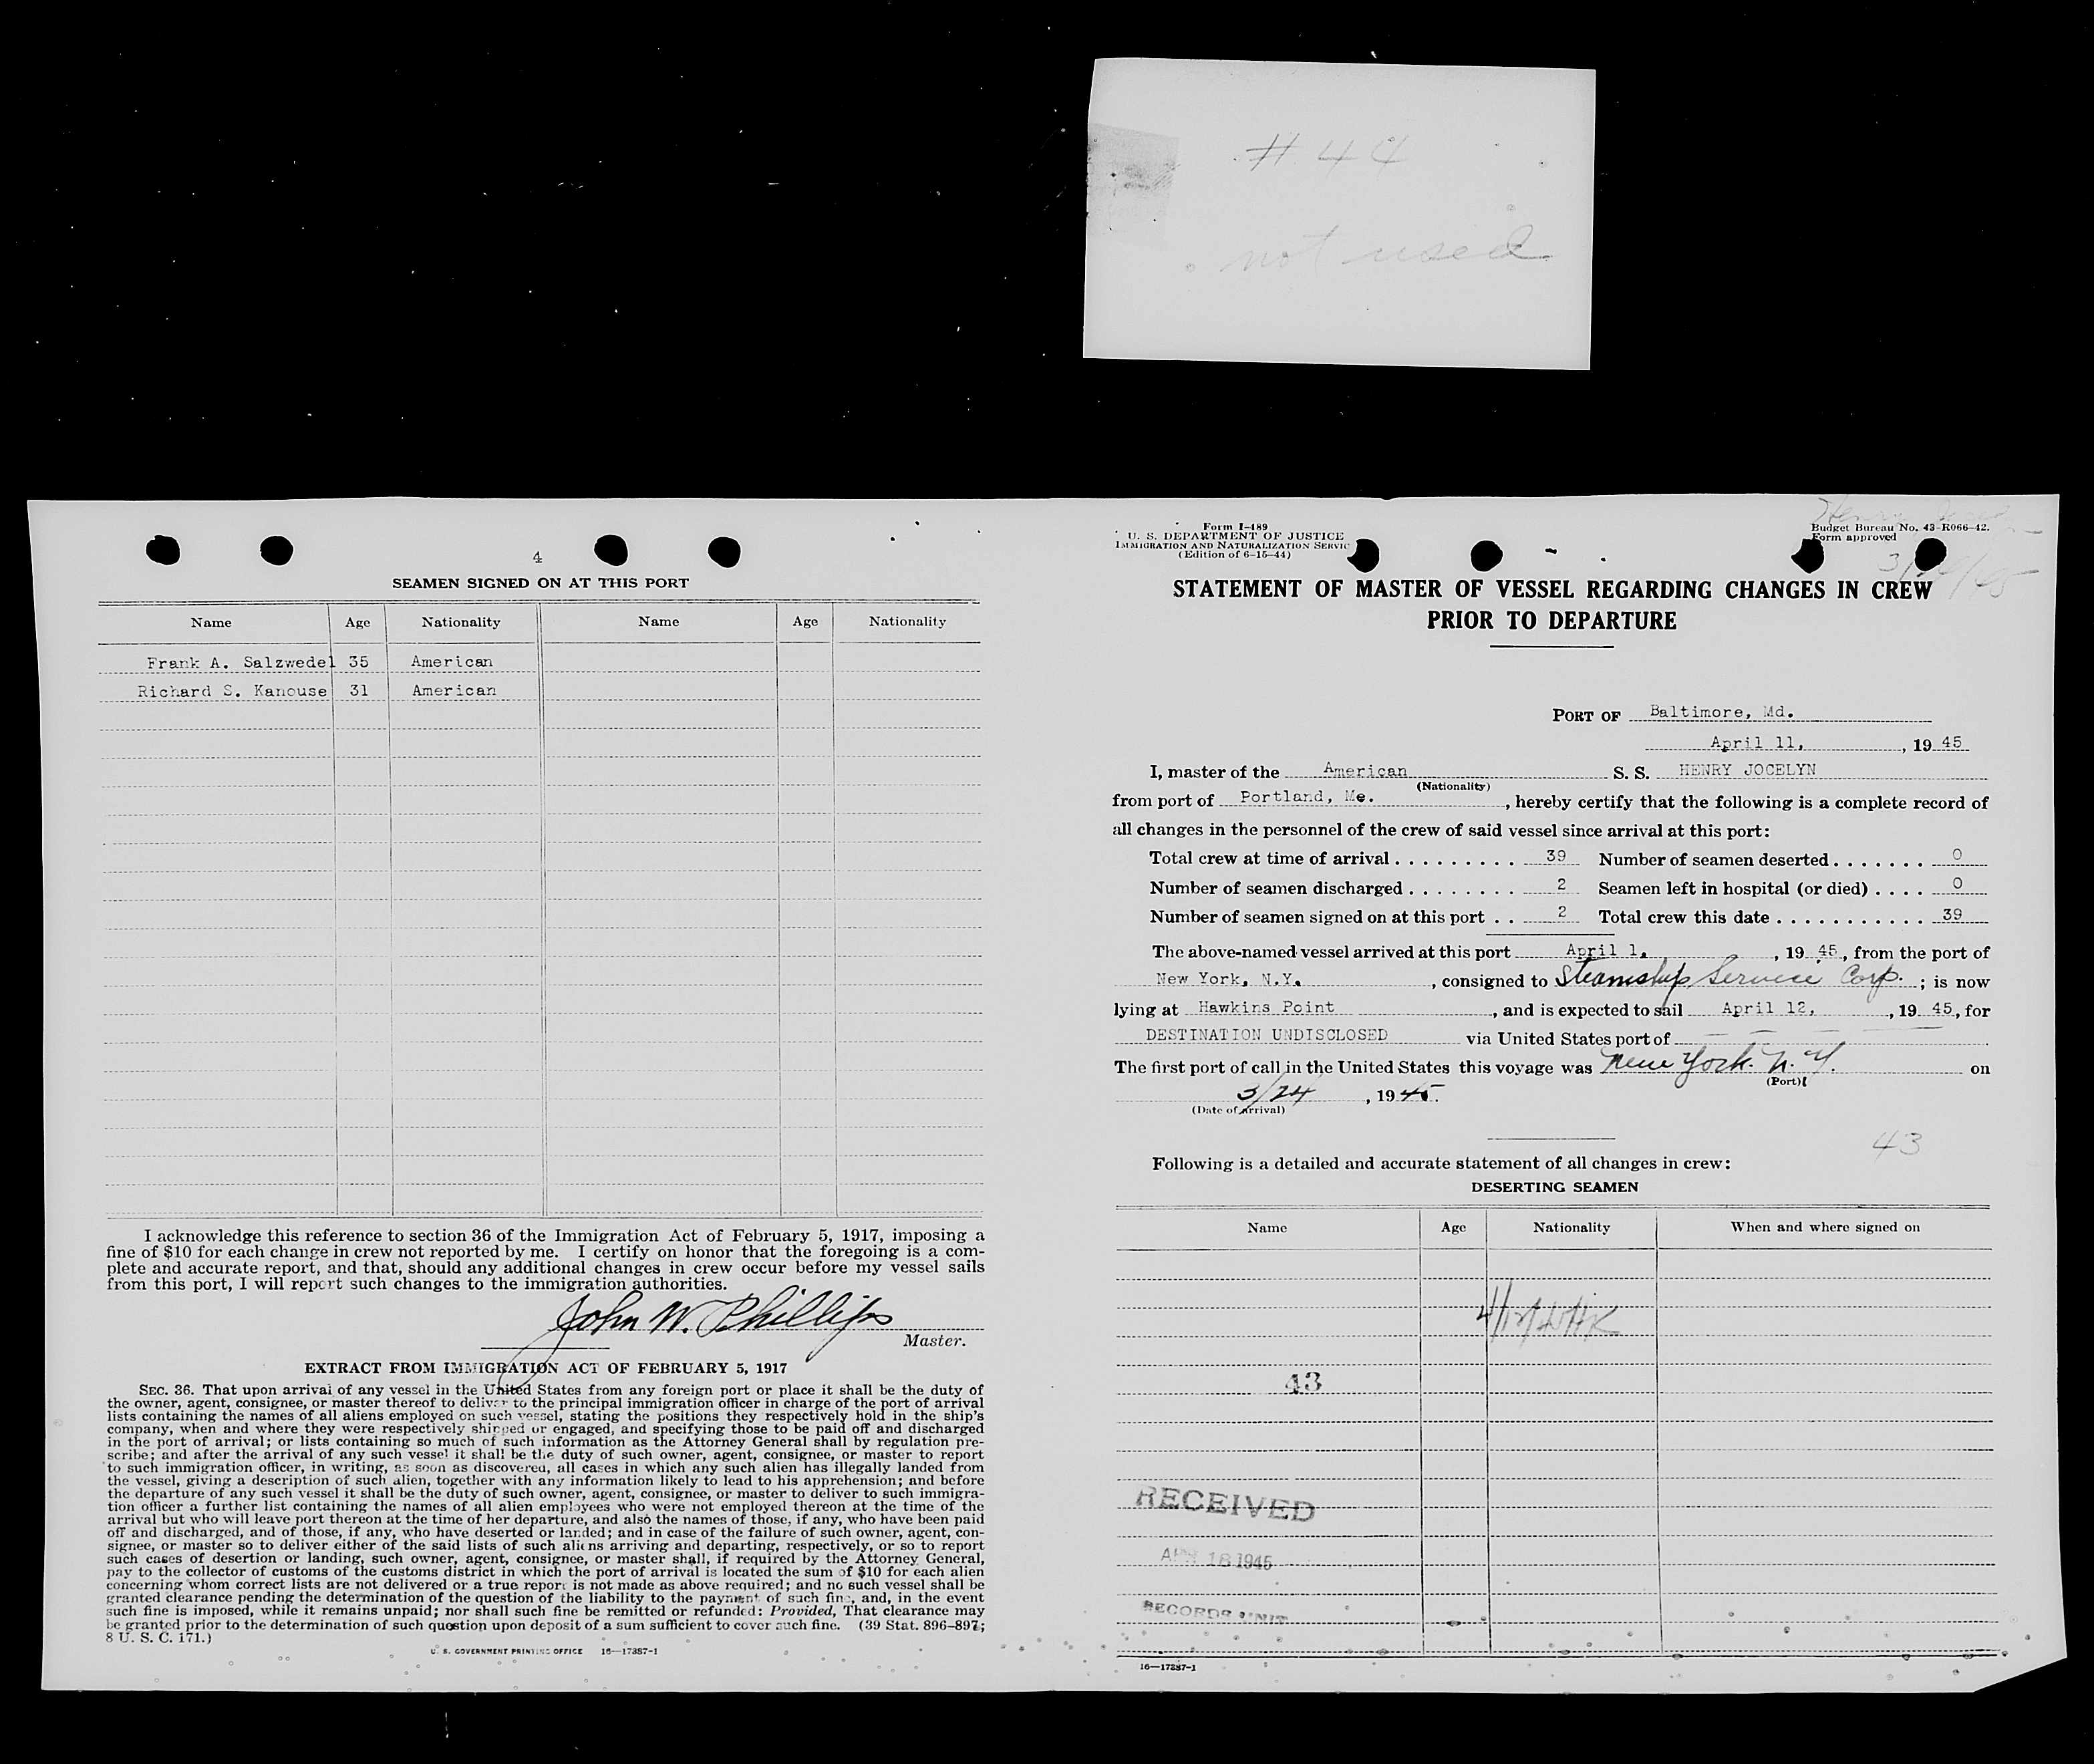 #44
not used
4
SEAMEN SIGNED ON AT THIS PORT
Name Age Nationality Name Age Nationality
Frank A. Salzwedel 35 American
Richard S. Kanouse 31 American
I acknowledge this reference to section 36 of the Immigration Act of February 5, 1917, imposing a
fine of $10 for each change in crew not reported by me. I certify on honor that the foregoing is a com-
plete and accurate report, and that, should any additional changes in crew occur before my vessel sails
from this port, I will report such changes to the immigration authorities.
John W. Phillips
Master.
EXTRACT FROM IMMIGRATION ACT OF FEBRUARY 5, 1917
SEC. 36. That upon arrival of any vessel in the United States from any foreign port or place it shall be the duty of
the owner, agent, consignee, or master thereof to deliver to the principal immigration officer in charge of the port of arrival
lists containing the names of all aliens employed on such vessel, stating the positions they respectively hold in the ship's
company, when and where they were respectively shipped or engaged, and specifying those to be paid off and discharged
in the port of arrival; or lists containing so much of such information as the Attorney General shall by regulation pre-
scribe; and after the arrival of any such vessel it shall be the duty of such owner, agent, consignee, or master to report
to such immigration officer, in writing, as soon as discovered, all cases in which any such alien has illegally landed from
the vessel, giving a description of such alien, together with any information likely to lead to his apprehension; and before
the departure of any such vessel it shall be the duty of such owner, agent, consignee, or master to deliver to such immigra-
tion officer a further list containing the names of all alien employees who were not employed thereon at the time of the
arrival but who will leave port thereon at the time of her departure, and also the names of those, if any, who have been paid
off and discharged, and of those, if any, who have deserted or landed; and in case of the failure of such owner, agent, con-
signee, or master so to deliver either of the said lists of such aliens arriving and departing, respectively, or so to report
such cases of desertion or landing, such owner, agent, consignee, or master shall, if required by the Attorney General,
pay to the collector of customs of the customs district in which the port of arrival is located the sum of $10 for each alien
concerning whom correct lists are not delivered or a true report is not made as above required; and no such vessel shall be
granted clearance pending the determination of the question of the liability to the payment of such fine, and, in the event
such fine is imposed, while it remains unpaid; nor shall such fine be remitted or refunded: Provided, That clearance may
be granted prior to the determination of such question upon deposit of a sum sufficient to cover such fine. (39 Stat. 896-897;
8 U. S. C. 171.)
U. S. GOVERNMENT PRINTING OFFICE 16—17387-1
Form I-489
U. S. DEPARTMENT OF JUSTICE
IMMIGRATION AND NATURALIZATION SERVIC
(Edition of 6-15-44)
Henry
Budget Bureau No. 43-R066-42.
Form approved
STATEMENT OF MASTER OF VESSEL REGARDING CHANGES IN CREW
PRIOR TO DEPARTURE
PORT OF Baltimore, Md.
April 11, , 19 45
I, master of the American S. S. HENRY JOCELYN
(Nationality)
from port of Portland, Me. , hereby certify that the following is a complete record of
all changes in the personnel of the crew of said vessel since arrival at this port:
Total crew at time of arrival . . . . . . . . . 39 Number of seamen deserted . . . . . . . 0
Number of seamen discharged . . . . . . . . 2 Seamen left in hospital (or died) . . . . 0
Number of seamen signed on at this port . . 2 Total crew this date . . . . . . . . . . . . 39
The above-named vessel arrived at this port April 1, , 19 45, from the port of
New York, N.Y. , consigned to Steamship Service Corp. ; is now
lying at Hawkins Point , and is expected to sail April 12, , 19 45, for
DESTINATION UNDISCLOSED via United States port of
The first port of call in the United States this voyage was New York. N. Y. on
(Port)
3/24 , 19 45.
(Date of arrival)
43
Following is a detailed and accurate statement of all changes in crew:
DESERTING SEAMEN
Name Age Nationality When and where signed on
43
RECEIVED
APR 18 1945
RECORDS UNIT
16—17387-1